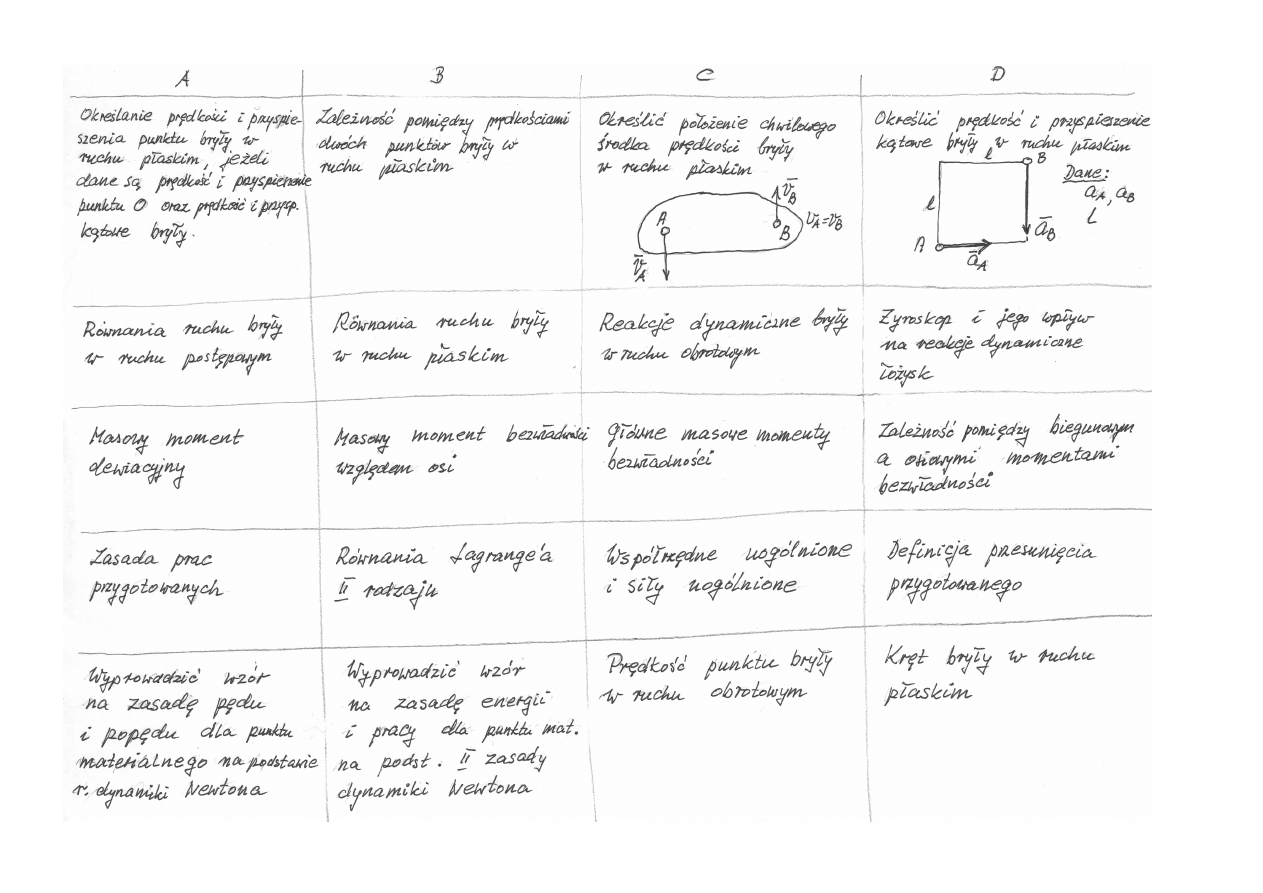 A
B
C
D
Określanie prędkości i przyspie-
szenia punktu bryły w
ruchu płaskim, jeżeli
dane są prędkość i przyspieszenie
punktu O oraz prędkość i przysp.
kątowe bryły.
Zależność pomiędzy prędkościami
dwóch punktów bryły w
ruchu płaskim
Określić położenie chwilowego
środka prędkości bryły
w ruchu płaskim
A
v̄A
v̄B
B
vA=vB
Określić prędkość i przyspieszenie
kątowe bryły w ruchu płaskim
l
B
l
A
āA
āB
Dane:
aA, aB
L
Równania ruchu bryły
w ruchu postępowym
Równania ruchu bryły
w ruchu płaskim
Reakcje dynamiczne bryły
w ruchu obrotowym
Żyroskop i jego wpływ
na reakcje dynamiczne
łożysk
Masowy moment
dewiacyjny
Masowy moment bezwładności
względem osi
Główne masowe momenty
bezwładności
Zależność pomiędzy biegunowym
a osiowymi momentami
bezwładności
Zasada prac
przygotowanych
Równania Lagrange'a
II rodzaju
Współrzędne uogólnione
i siły uogólnione
Definicja przesunięcia
przygotowanego
Wyprowadzić wzór
na zasadę pędu
i popędu dla punktu
materialnego na podstawie
r. dynamiki Newtona
Wyprowadzić wzór
na zasadę energii
i pracy dla punktu mat.
na podst. II zasady
dynamiki Newtona
Prędkość punktu bryły
w ruchu obrotowym
Kręt bryły w ruchu
płaskim